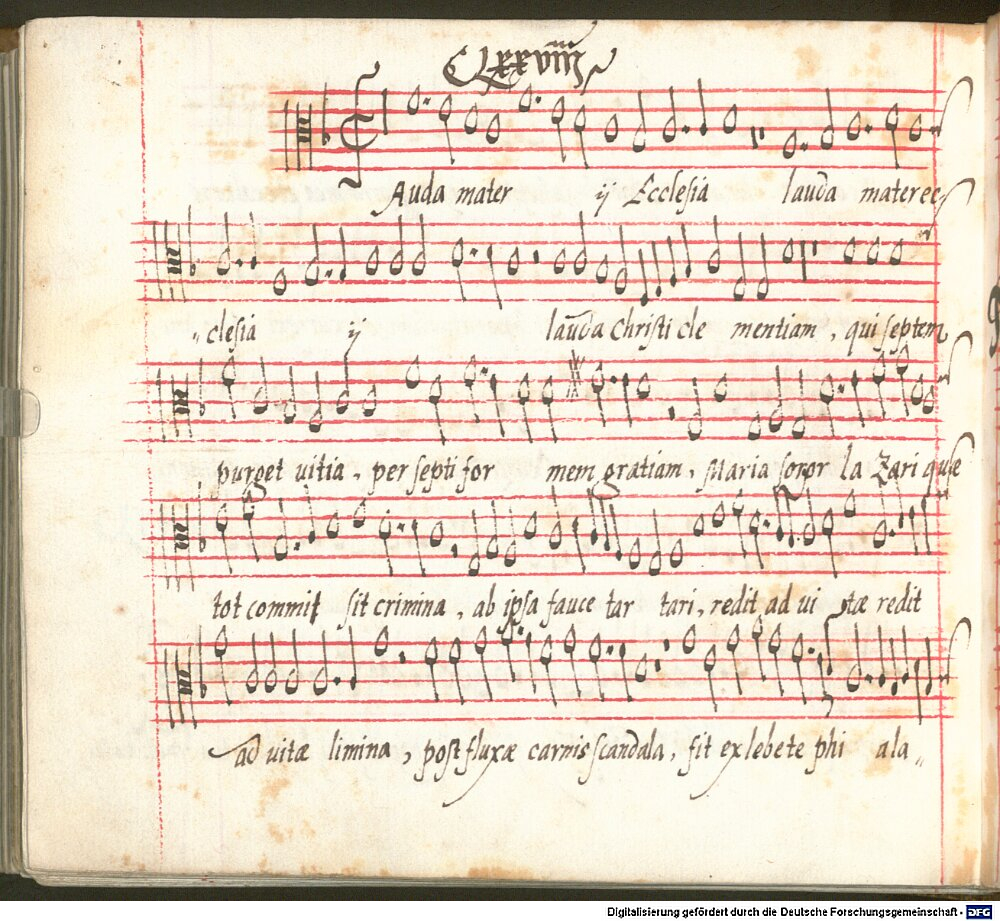 CLXXVIIII
Auda mater ij Ecclesia lauda mater ec-
clesia ij lauda Christi cle mentiam, qui septem
purget uitia, per septi for mem gratiam, Maria soror la Zari quæ
tot commi sit crimina, ab ipsa fauce tar tari, redit ad ui tæ redit
ad uitæ limina, post fluxæ carnis scandala, fit ex lebete phi ala,,
Digitalisierung gefördert durch die Deutsche Forschungsgemeinschaft - DFG